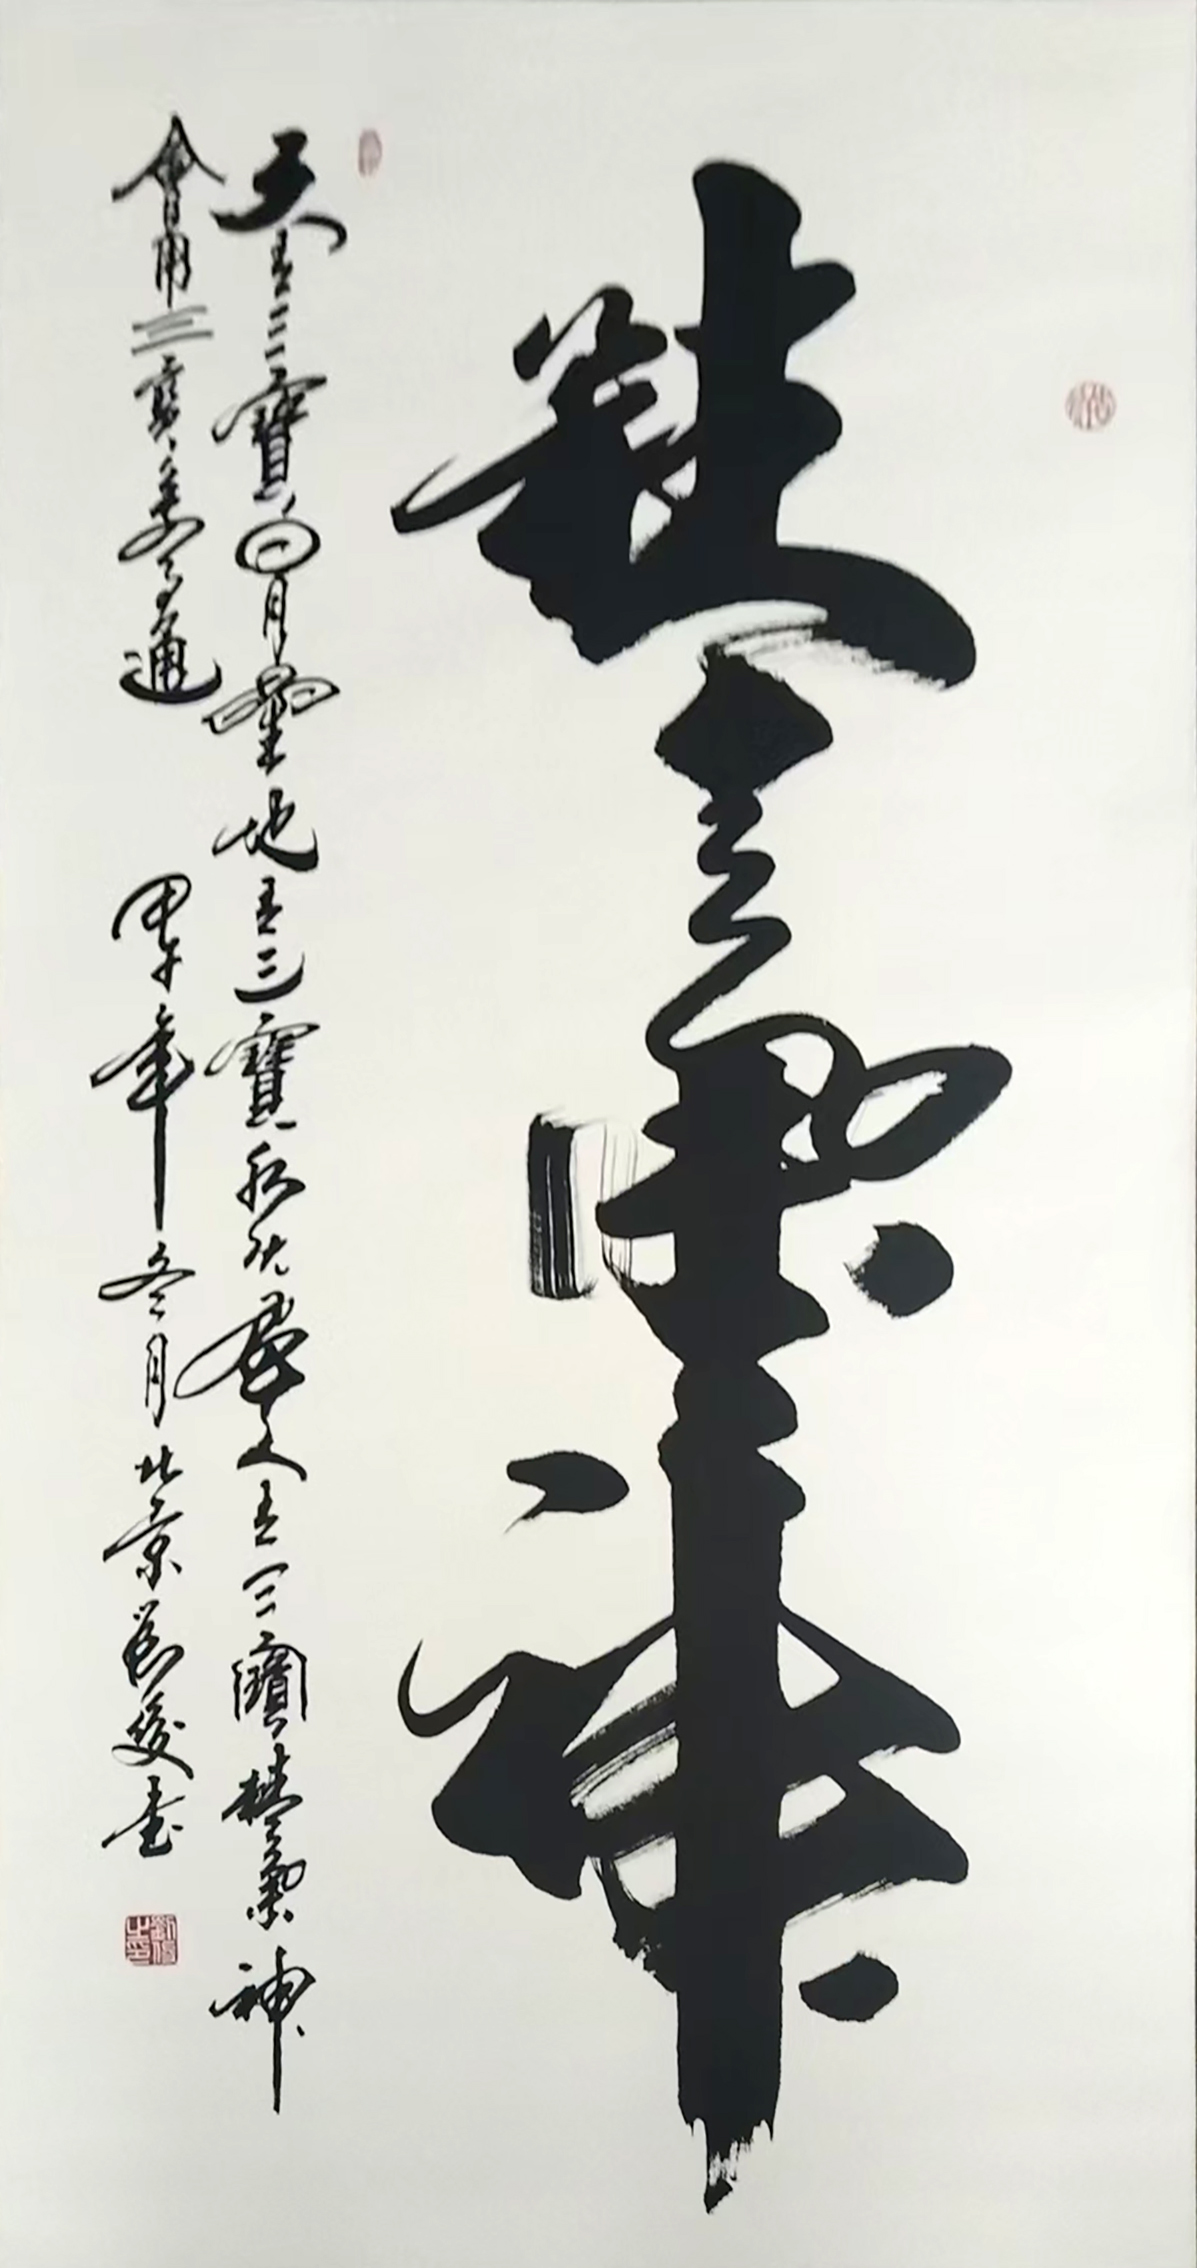 精氣神
天有三寶日月星地有三寶水火風人有三寶精氣神
會用三寶通 甲午年冬月北京劉俊書